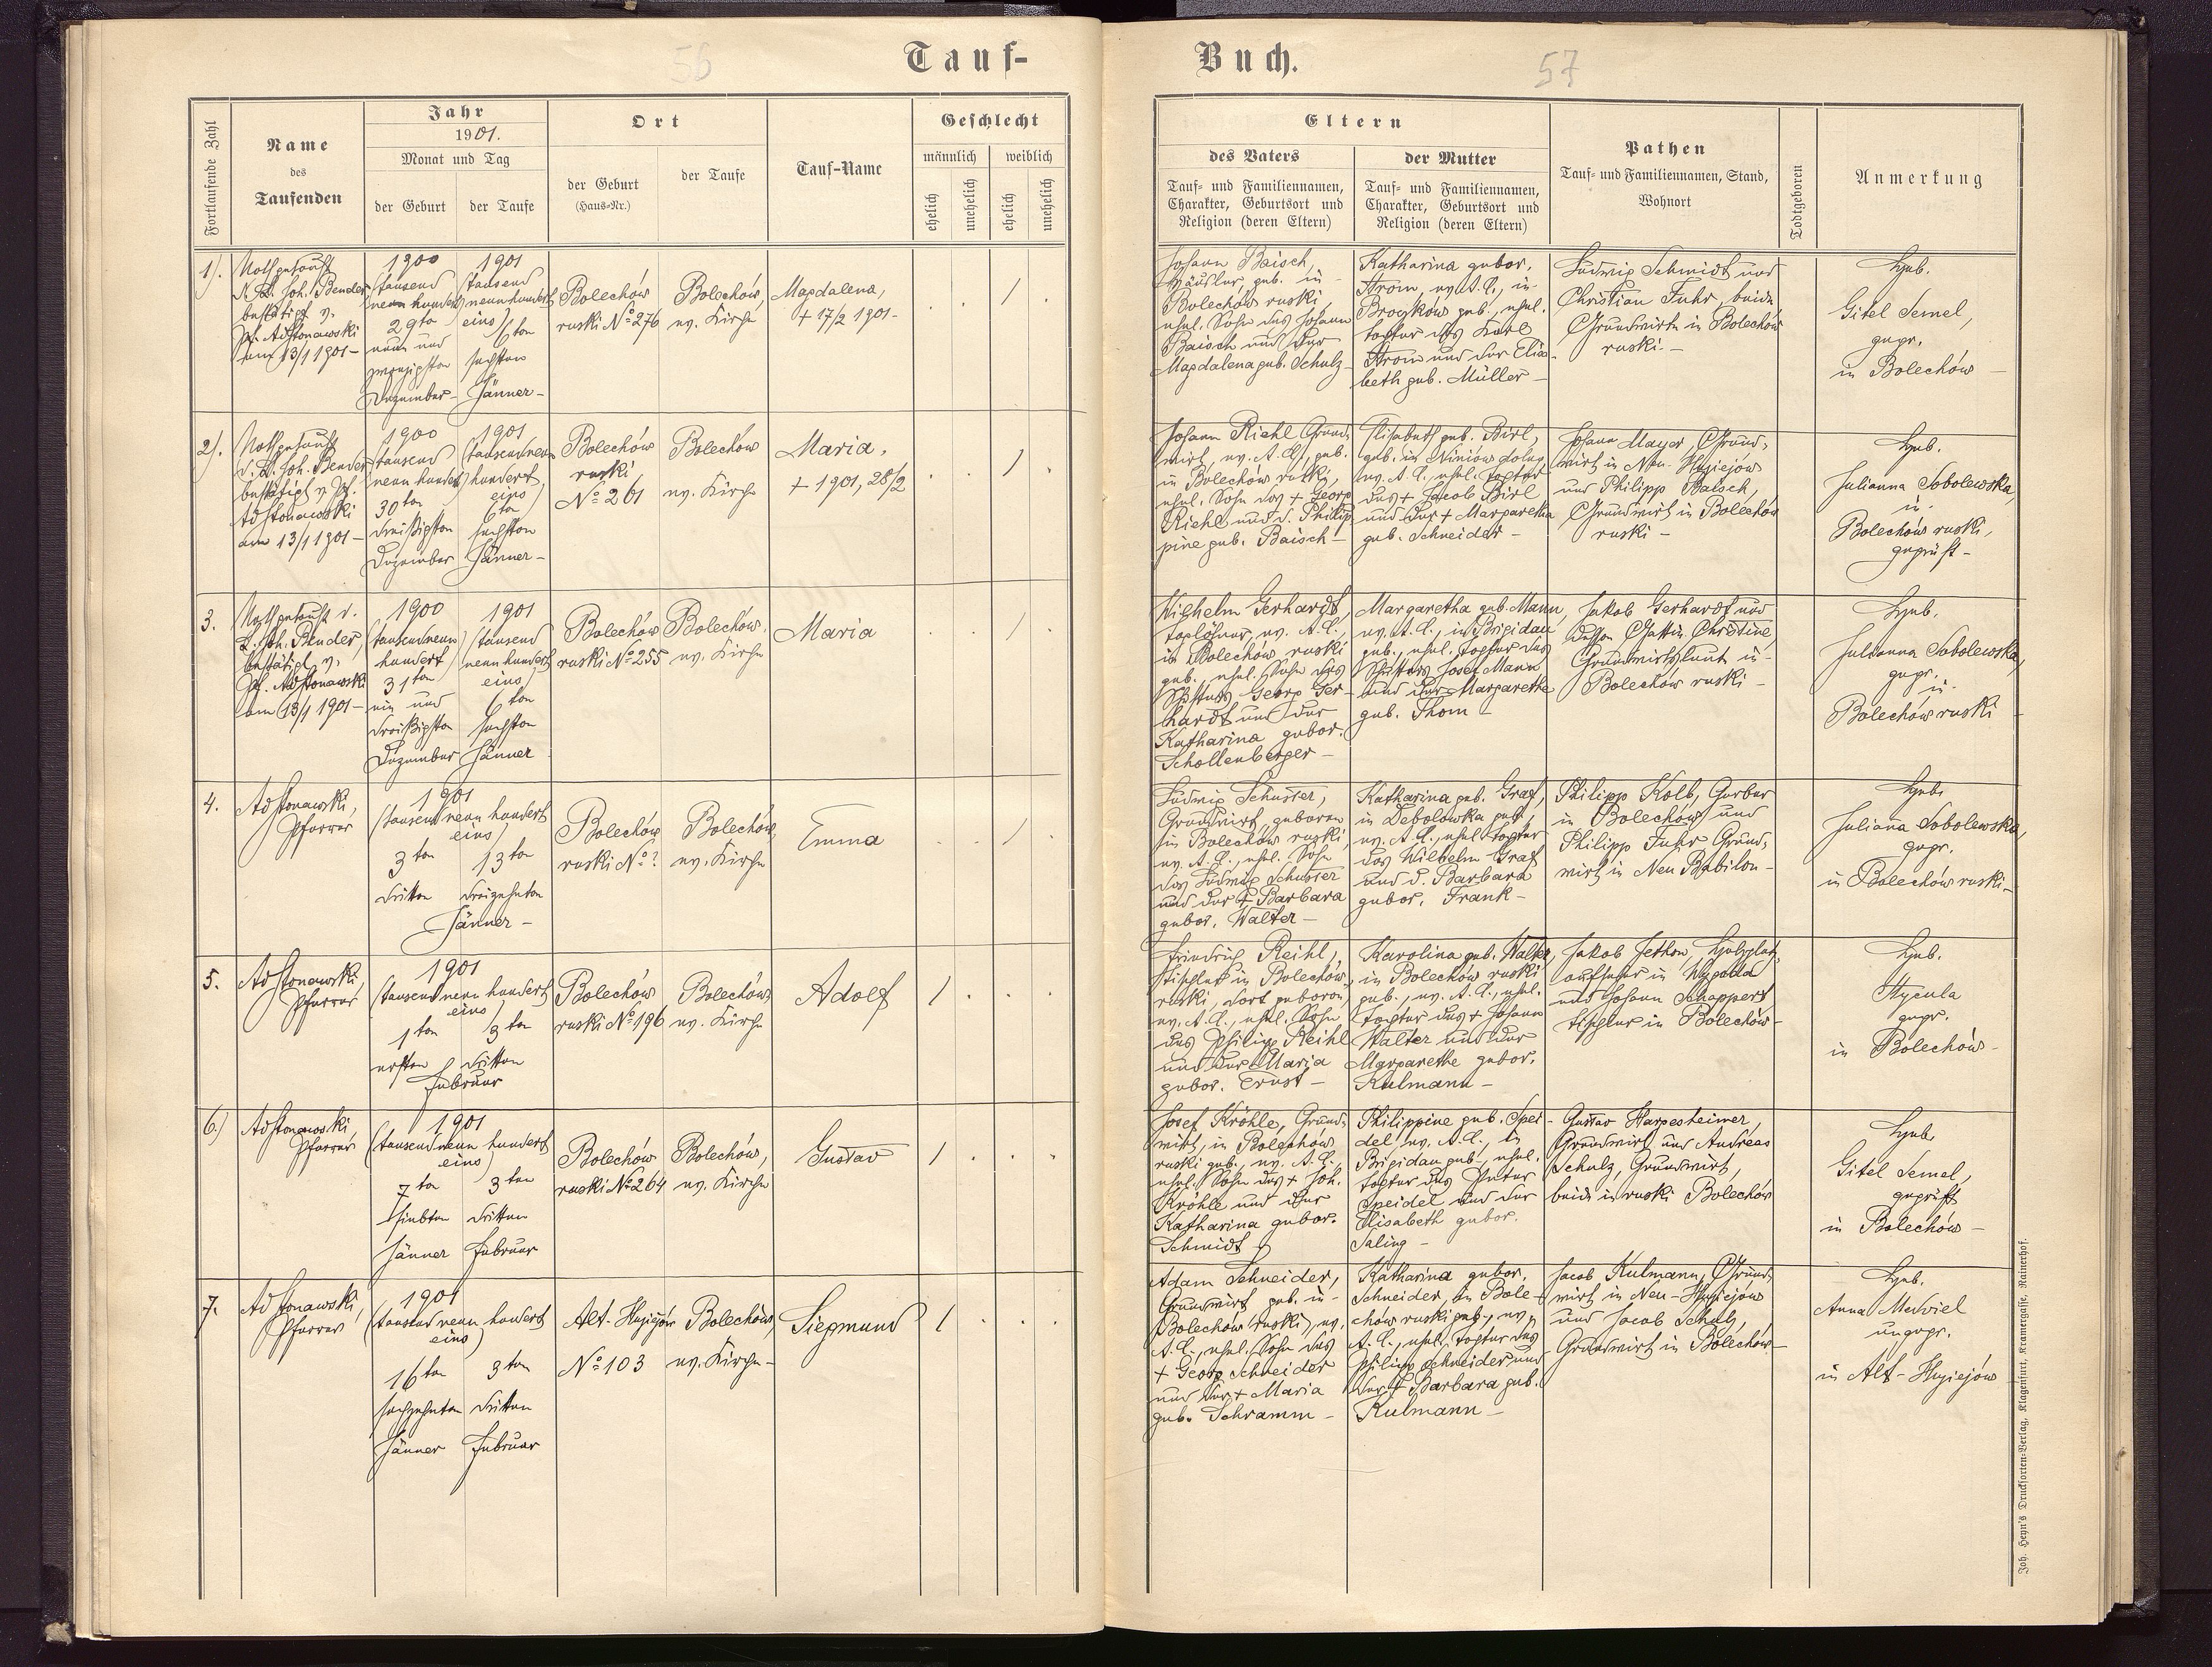 56
Tauf-
Fortlaufende Zahl
Name
des
Taufenden
Jahr
1901.
Monat und Tag
der Geburt
der Taufe
Ort
der Geburt
(Haus-Nr.)
der Taufe
Tauf-Name
Geschlecht
männlich
weiblich
ehelich
unehelich
ehelich
unehelich
1).
Nothgetauft
v. L. Joh. Bender
bestätigt v.
Pf. Ad Stonawski
am 13/1 1901 –
1900
(tausend
neun hundert)
29ten
neun und
zwanzigsten
Dezember –
1901
(tausend
neunhundert
eins)
6ten
sechsten
Jänner –
Bolechów
ruski No 276
Bolechów,
ev. Kirche
Magdalena,
+ 17/2 1901 –
2).
Nothgetauft
v. L. Joh. Bender
bestätigt v. Pf.
Ad Stonawski
am 13/1 1901 –
1900
(tausend
neun hundert)
30ten
dreißigsten
Dezember
1901
(tausendneun
hundert
eins)
6ten
sechsten
Jänner –
Bolechów
ruski
No 261
Bolechów
ev. Kirche
Maria,
+ 1901, 28/2
3.
Nothgetauft v.
L. Joh. Bender,
bestätigt v.
Pf. Ad Stonawski
am 13/1 1901 –
1900
(tausendneun
hundert)
31ten
ein und
dreißigsten
Dezember
1901
(tausend
neun hundert
eins)
6ten
sechsten
Jänner
Bolechów
ruski No 255
Bolechów,
ev. Kirche
Maria
4.
Ad Stonawski,
Pfarrer
1901
(tausend neun hundert
eins)
3ten 13ten
dritten dreizehnten
Jänner –
Bolechów
ruski No ?
Bolechów,
ev. Kirche
Emma
5.
Ad Stonawski,
Pfarrer
1901
(tausend neun hundert
eins)
1ten 3ten
ersten dritten
Februar
Bolechów
ruski No 196
Bolechów,
ev. Kirche
Adolf
6.)
Ad Stonawski,
Pfarrer
1901
(tausend neun hundert
eins)
7ten 3ten
siebten dritten
Jänner Februar
Bolechów
ruski No 264
Bolechów,
ev. Kirche
Gustav
7.
Ad Stonawski,
Pfarrer
1901
(tausend neun hundert
eins)
16ten 3ten
sechzehnten dritten
Jänner Februar
Alt-Hujejów
No 103
Bolechów,
ev. Kirche –
Siegmund
Buch.
57
Eltern
des Vaters
Tauf- und Familiennamen,
Charakter, Geburtsort und
Religion (deren Eltern)
der Mutter
Tauf- und Familiennamen,
Charakter, Geburtsort und
Religion (deren Eltern)
Pathen
Tauf- und Familiennamen, Stand,
Wohnort
Todtgeboren
Anmerkung
Johann Baisch,
Häusler, geb. in
Bolechów ruski,
ehel. Sohn des Johann
Baisch und der
Magdalena geb. Schulz –
Katharina gebor.
Krom, ev. A. C., in
Broczków geb., ehel.
Tochter des Karl
Krom und der Elisa-
beth geb. Müller –
Ludwig Schmidt und
Christian Fuhr, beide
Grundwirte in Bolechów
ruski. –
Heb.
Gitel Semel,
gepr.
in Bolechów –
Johann Riehl Grund-
wirt, ev. A. C., geb.
in Bolechów ruski,
ehel. Sohn des + Georg
Riehl und d. Philip
pine geb. Baisch –
Elisabeth geb. Birl,
geb. in Niniów dolny
ev. A. C., ehel. Tochter
des + Jacob Birl
und der + Margaretha
geb. Schneider –
Johann Mayer, Grund-
wirt in Neu-Hujiejów
und Philipp Baisch,
Grundwirt in Bolechów
ruski –
Heb.
Julianna Sobolewska,
in
Bolechów ruski,
geprüft –
Wilhelm Gerhardt,
Taglöhner, ev. A. C.,
in Bolechów ruski
geb., ehel. Sohn des
Georg Ger-
hardt und der
Katharina gebor.
Schollenberger –
Margaretha geb. Mann,
ev. A. C., in Brigidau
geb., ehel. Tochter des
Josef Mann
und der Margarethe
geb. Thom –
Jakob Gerhardt und
dessen Gattin Christine,
Grundwirtsleute in
Bolechów ruski –
Heb.
Julianna Sobolewska,
gepr.
in
Bolechów ruski –
Ludwig Schusser,
Grundwirt, geboren
in Bolechów ruski,
ev. A. C., ehel. Sohn
des Ludwig Schusser
und der + Barbara
gebor. Walter –
Katharina geb. Graf,
in Debolowka geb.,
ev. A. C., ehel. Tochter
des Wilhelm Graf
und d. Barbara
gebor. Frank –
Philipp Kolb, Gerber
in Bolechów und
Philipp Fuhr Grund-
wirt in Neu Babilon –
Heb.
Juliana Sobolewska,
gepr.
in Bolechów ruski –
Friedrich Reihl,
Tischler in Bolechów
ruski, dort geboren,
ev. A. C., ehel. Sohn
des Philipp Reihl
und der Maria
gebor. Ernst –
Karolina geb. Walter,
in Bolechów ruski
geb., ev. A. C., ehel.
Tochter des + Johann
Walter und der
Margarethe gebor.
Kulmann –
Jakob Jethon, Holzplatz-
aufseher in Wygoda
und Johann Schappert
Tischler in Bolechów –
Heb.
Hycula
gepr.
in Bolechów –
Josef Kröhle, Grund-
wirt, in Bolechów
ruski geb., ev. A. C.,
ehel. Sohn des + Joh.
Kröhle und der
Katharina gebor.
Schmidt
Philippine geb. Spei-
del, ev. A. C., in
Brigidau geb., ehel.
Tochter des Peter
Speidel und der
Elisabeth gebor.
Saling –
Gustav Harpesheimer,
Grundwirt und Andreas
Schulz, Grundwirt,
beide in ruski Bolechów
Heb.
Gitel Semel,
geprüft
in Bolechów –
Adam Schneider,
Grundwirt, geb. in
Bolechów ruski, ev.
A. C., ehel. Sohn des
+ Georg Schneider
und der + Maria
geb. Schramm –
Katharina gebor.
Schneider, in Bole-
chów ruski geb., ev.
A. C., ehel. Tochter des
Philipp Schneider und
der + Barbara geb.
Kulmann –
Jacob Kulmann, Grund-
wirt in Neu-Hujiejów
und Jacob Schulz,
Grundwirt in Bolechów –
Heb.
Anna Medwiel
ungepr.
in Alt-Hujiejów
Joh. Heyn's Drucksorten-Verlag, Klagenfurt, Kramergasse, Rainerhof.